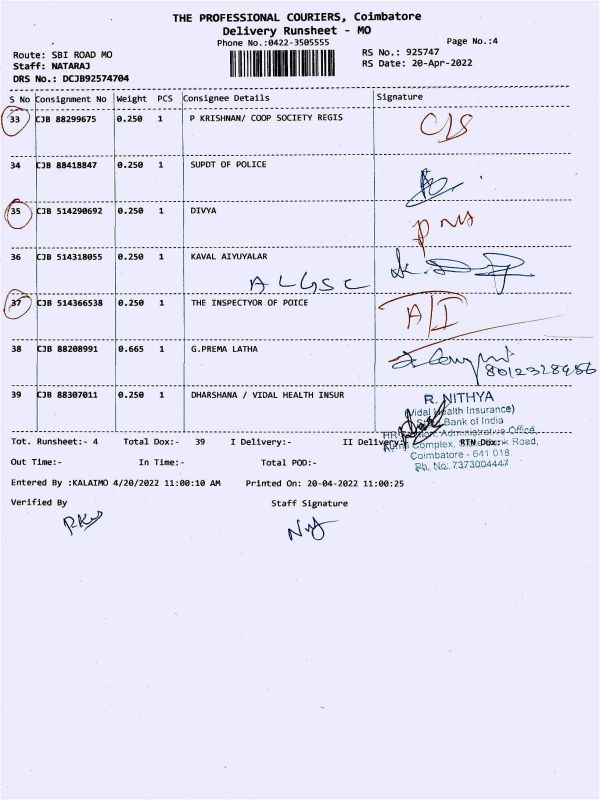 THE PROFESSIONAL COURIERS, Coimbatore
Delivery Runsheet - MO
Phone No.:0422-3505555
Page No.:4
Route: SBI ROAD MO
RS No.: 925747
Staff: NATARAJ
RS Date: 20-Apr-2022
DRS No.: DCJB92574704
S No Consignment No Weight PCS Consignee Details Signature
33 CJB 88299675 0.250 1 P KRISHNAN/ COOP SOCIETY REGIS
34 CJB 88418847 0.250 1 SUPDT OF POLICE
35 CJB 514290692 0.250 1 DIVYA
36 CJB 514318055 0.250 1 KAVAL AIYUYALAR
37 CJB 514366538 0.250 1 THE INSPECTYOR OF POICE A/I
38 CJB 88208991 0.665 1 G.PREMA LATHA
39 CJB 88307011 0.250 1 DHARSHANA / VIDAL HEALTH INSUR
R. NITHYA
(Vidal Health Insurance)
State Bank of India
Administrative Office,
Complex, State Bank Road,
Coimbatore - 641 018
Ph. No: 7373004447
Tot. Runsheet:- 4 Total Dox:- 39 I Delivery:- II Delivery:- RTN Dox:-
Out Time:- In Time:- Total POD:-
Entered By :KALAIMO 4/20/2022 11:00:10 AM Printed On: 20-04-2022 11:00:25
Verified By Staff Signature